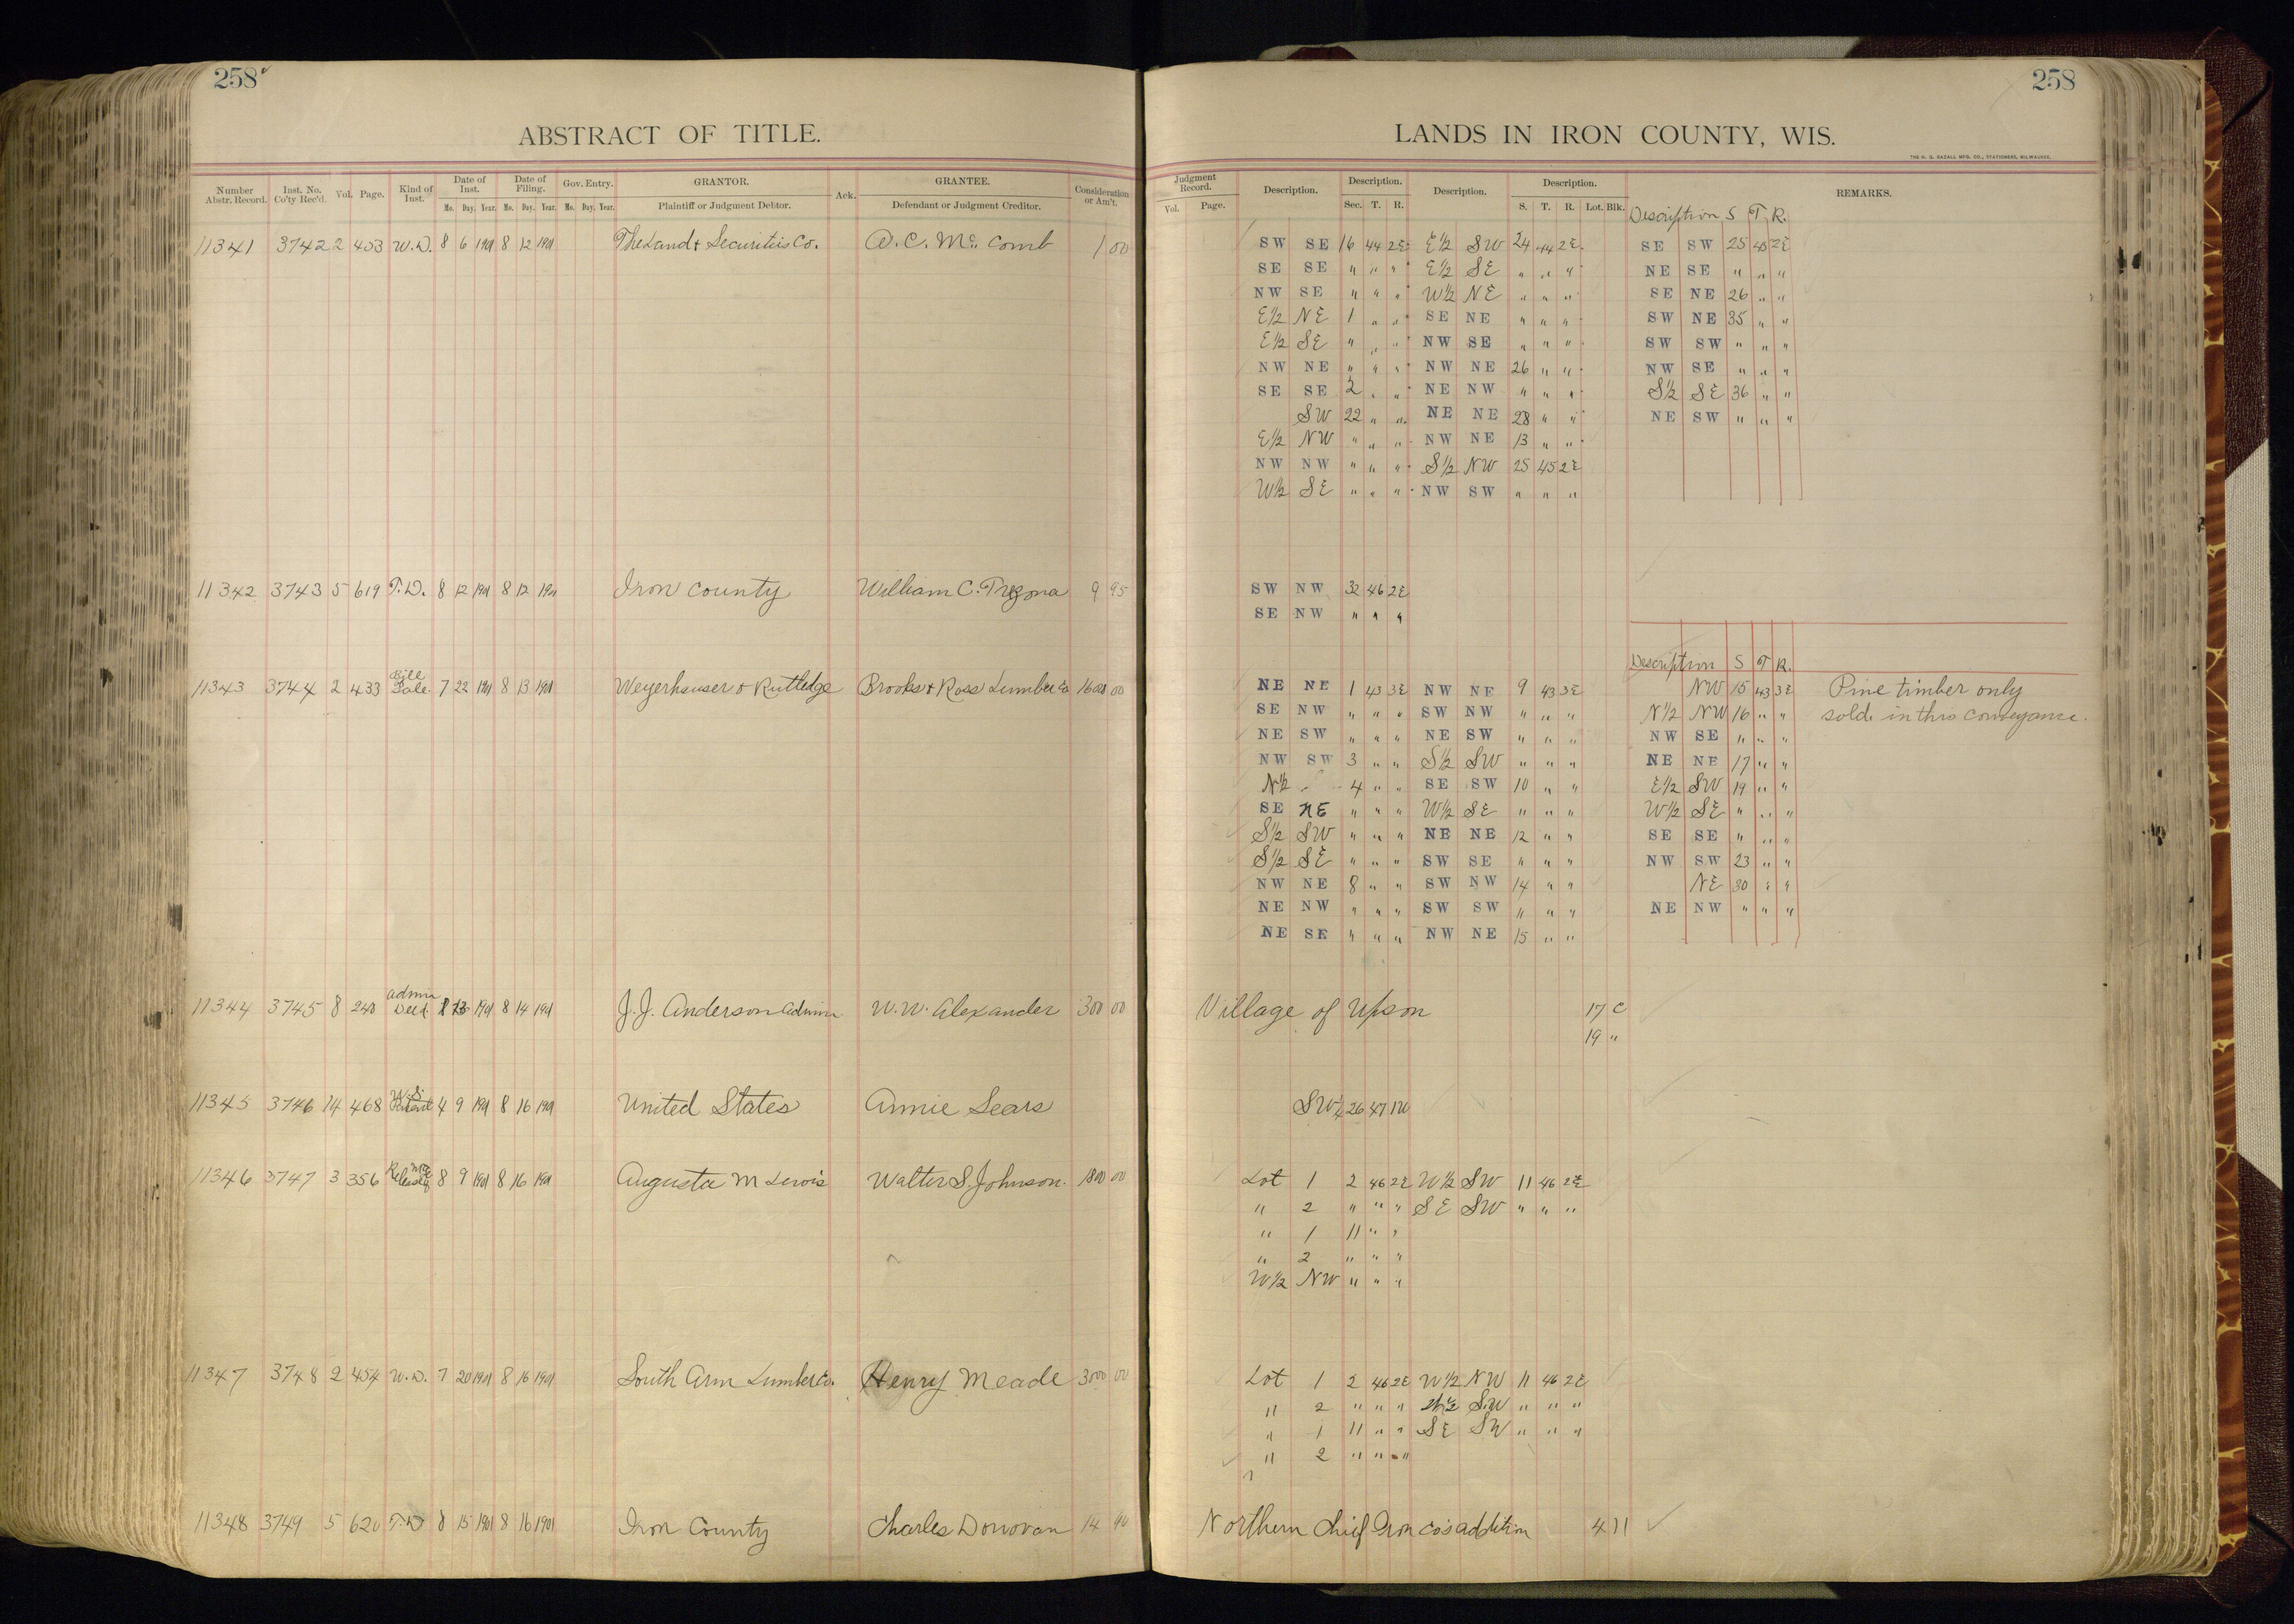 258
258
ABSTRACT OF TITLE.
LANDS IN IRON COUNTY, WIS.
THE H. G. RAZALL MFG. CO., STATIONERS, MILWAUKEE.
Number Abstr. Record. Inst. No. Co'ty Rec'd. Vol. Page. Kind of Inst. Date of Inst. Mo. Day. Year. Date of Filing. Mo. Day. Year. Gov. Entry. Mo. Day. Year. GRANTOR. Plaintiff or Judgment Debtor. Ack. GRANTEE. Defendant or Judgment Creditor. Consideration or Am't.
Judgment Record. Vol. Page. Description. Description. Sec. T. R. Description. Description. S. T. R. Lot. Blk. REMARKS.
Description S T R.
11341 3742 2 453 W.D. 8 6 1901 8 12 1901 The Land & Securities Co. A. C. Mc Comb 1 00 SW SE 16 44 2E E½ SW 24 44 2E SE SW 25 45 2E
SE SE " " " E½ SE " " " NE SE " " "
NW SE " " " W½ NE " " " SE NE 26 " "
E½ NE 1 " " SE NE " " " SW NE 35 " "
E½ SE " " " NW SE " " " SW SW " " "
NW NE " " " NW NE 26 " " NW SE " " "
SE SE 2 " " NE NW " " " S½ SE 36 " "
SW 22 " " NE NE 28 " " NE SW " " "
E½ NW " " " NW NE 13 " "
NW NW " " " S½ NW 25 45 2E
W½ SE " " " NW SW " " "
11342 3743 5 619 T.D. 8 12 1901 8 12 1901 Iron County William C. Tregona 9 95 SW NW 32 46 2E
SE NW " " "
Description S T R.
11343 3744 2 433 Bill Sale 7 22 1901 8 13 1901 Weyerhauser & Rutledge Brooks & Ross Lumber Co 16000 00 NE NE 1 43 3E NW NE 9 43 3E NW 15 43 3E Pine timber only
SE NW " " " SW NW " " " N½ NW 16 " " sold in this conveyance.
NE SW " " " NE SW " " " NW SE " " "
NW SW 3 " " S½ SW " " " NE NE 17 " "
N½ 4 " " SE SW 10 " " E½ SW 19 " "
SE NE " " " W½ SE " " " W½ SE " " "
S½ SW " " " NE NE 12 " " SE SE " " "
S½ SE " " " SW SE " " " NW SW 23 " "
NW NE 8 " " SW NW 14 " " NE 30 " "
NE NW " " " SW SW " " " NE NW " " "
NE SE " " " NW NE 15 " "
11344 3745 8 240 Admin Deed 8 13 1901 8 14 1901 J. J. Anderson Admin W. W. Alexander 300 00 Village of Upson 17 C
19 "
11345 3746 14 468 U.S. Patent 4 9 1901 8 16 1901 United States Annie Sears SW¼ 26 47 1W
11346 3747 3 356 Release Mtg 8 9 1901 8 16 1901 Augusta M Lewis Walter S. Johnson. 1800 00 Lot 1 2 46 2E W½ SW 11 46 2E
" 2 " " " SE SW " " "
" 1 11 " "
" 2 " " "
W½ NW " " "
11347 3748 2 454 W.D. 7 20 1901 8 16 1901 South Arm Lumber Co. Henry Meade 3000 00 Lot 1 2 46 2E W½ NW 11 46 2E
" 2 " " " W½ SW " " "
" 1 11 " " SE SW " " "
" 2 " " "
11348 3749 5 620 T.D 8 15 1901 8 16 1901 Iron County Charles Donovan 14 90 Northern Chief Iron Co's addition 4 11